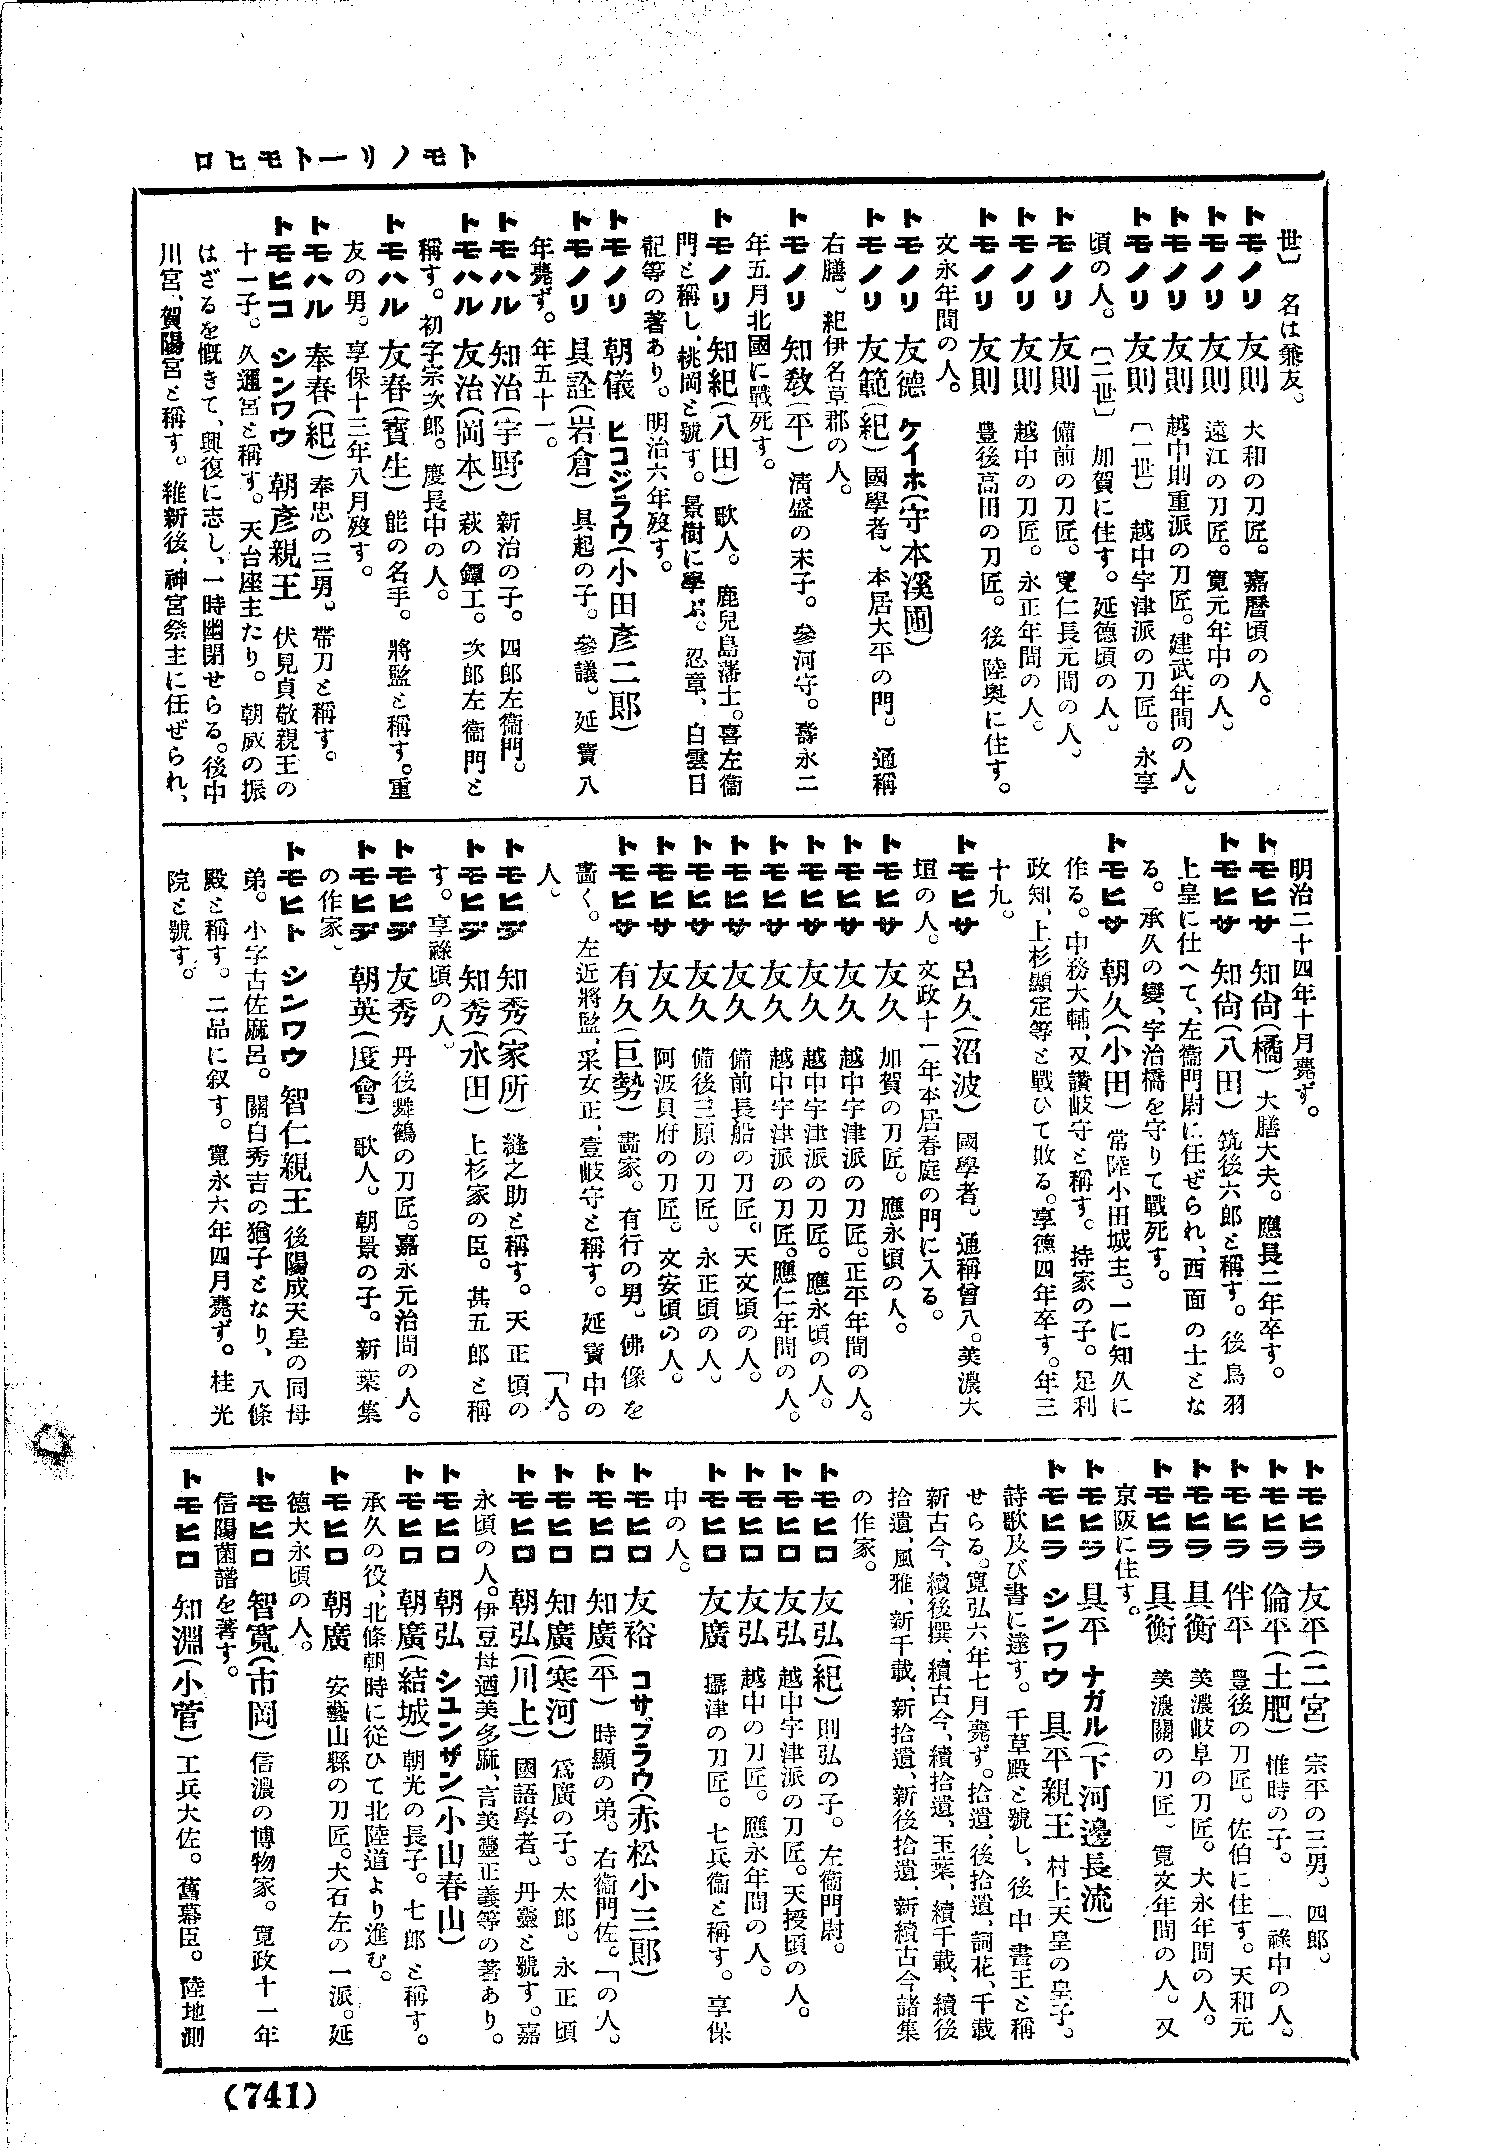 トモノリ―トモヒロ
世〕 名は兼友。
トモノリ 友則 大和の刀匠。嘉暦頃の人。
トモノリ 友則 遠江の刀匠。寛元年中の人。
トモノリ 友則 越中則重派の刀匠。建武年間の人。
トモノリ 友則 〔一世〕 越中宇津派の刀匠。永享
頃の人。〔二世〕 加賀に住す。延德頃の人。
トモノリ 友則 備前の刀匠。寬仁長元間の人。
トモノリ 友則 越中の刀匠。永正年間の人。
トモノリ 友則 豊後高田の刀匠。後陸奥に住す。
文永年間の人。
トモノリ 友德 ケイホ(守本溪圃)
トモノリ 友範(紀) 國學者。本居大平の門。通稱
右膳。紀伊名草郡の人。
トモノリ 知敎(平) 淸盛の末子。參河守。壽永二
年五月北國に戰死す。
トモノリ 知紀(八田) 歌人。鹿兒島藩士。喜左衞
門と稱し、桃岡と號す。景樹に學ぶ。忍章、白雲日
記等の著あり。明治六年歿す。
トモノリ 朝儀 ヒコジラウ(小田彥二郎)
トモノリ 具詮(岩倉) 具起の子。參議。延寶八
年薨ず。年五十一。
トモハル 知治(宇野) 新治の子。四郎左衞門。
トモハル 友治(岡本) 萩の鐔工。次郎左衞門と
稱す。初字宗次郎。慶長中の人。
トモハル 友春(寳生) 能の名手。將監と稱す。重
友の男。享保十三年八月歿す。
トモハル 奉春(紀) 奉忠の三男。帶刀と稱す。
トモヒコ シンワウ 朝彥親王 伏見貞敬親王の
十一子。久邇宮と稱す。天台座主たり。朝威の振
はざるを慨きて、興復に志し、一時幽閉せらる。後中
川宮、賀陽宮と稱す。維新後、神宮祭主に任ぜられ、
明治二十四年十月薨ず。
トモヒサ 知尙(橘) 大膳大夫。應長二年卒す。
トモヒサ 知尙(八田) 筑後六郎と稱す。後鳥羽
上皇に仕へて、左衞門尉に任ぜられ、西面の士とな
る。承久の變、宇治橋を守りて戰死す。
トモヒサ 朝久(小田) 常陸小田城主。一に知久に
作る。中務大輔、又讃岐守と稱す。持家の子。足利
政知、上杉顯定等と戰ひて敗る。享德四年卒す。年三
十九。
トモヒサ 呂久(沼波) 國學者。通稱曾八。美濃大
垣の人。文政十一年本居春庭の門に入る。
トモヒサ 友久 加賀の刀匠。應永頃の人。
トモヒサ 友久 越中宇津派の刀匠。正平年間の人。
トモヒサ 友久 越中宇津派の刀匠。應永頃の人。
トモヒサ 友久 越中宇津派の刀匠。應仁年間の人。
トモヒサ 友久 備前長船の刀匠。天文頃の人。
トモヒサ 友久 備後三原の刀匠。永正頃の人。
トモヒサ 友久 阿波貝府の刀匠。文安頃の人。
トモヒサ 有久(巨勢) 畵家。有行の男。佛像を
畵く。左近將監、采女正、壹岐守と稱す。延寶中の
人。 「人。
トモヒデ 知秀(家所) 縫之助と稱す。天正頃の
トモヒデ 知秀(水田) 上杉家の臣。甚五郎と稱
す。享祿頃の人。
トモヒデ 友秀 丹後舞鶴の刀匠。嘉永元治間の人。
トモヒデ 朝英(度會) 歌人。朝景の子。新葉集
の作家。
トモヒト シンワウ 智仁親王 後陽成天皇の同母
弟。小字古佐麻呂。關白秀吉の猶子となり、八條
殿と稱す。二品に叙す。寬永六年四月薨ず。桂光
院と號す。
トモヒラ 友平(二宮) 宗平の三男。四郎。
トモヒラ 倫平(土肥) 惟時の子。一祿中の人。
トモヒラ 伴平 豊後の刀匠。佐伯に住す。天和元
トモヒラ 具衡 美濃岐阜の刀匠。大永年間の人。
トモヒラ 具衡 美濃關の刀匠。寬文年間の人。又
京阪に住す。
トモヒラ 具平 ナガル(下河邊長流)
トモヒラ シンワウ 具平親王 村上天皇の皇子。
詩歌及び書に達す。千草殿と號し、後中書王と稱
せらる。寬弘六年七月薨ず。拾遺、後拾遺、詞花、千載
新古今、續後撰、續古今、續拾遺、玉葉、續千載、續後
拾遺、風雅、新千載、新拾遺、新後拾遺、新續古今諸集
の作家。
トモヒロ 友弘(紀) 則弘の子。左衞門尉。
トモヒロ 友弘 越中宇津派の刀匠。天授頃の人。
トモヒロ 友弘 越中の刀匠。應永年間の人。
トモヒロ 友廣 攝津の刀匠。七兵衞と稱す。享保
中の人。
トモヒロ 友裕 コサブラウ(赤松小三郎)
トモヒロ 知廣(平) 時顯の弟。右衞門佐。「の人。
トモヒロ 知廣(寒河) 爲廣の子。太郎。永正頃
トモヒロ 朝弘(川上) 國語學者。丹靈と號す。嘉
永頃の人。伊豆母廼美多麻、言美靈正義等の著あり。
トモヒロ 朝弘 シユンザン(小山春山)
トモヒロ 朝廣(結城) 朝光の長子。七郎と稱す。
承久の役、北條朝時に從ひて北陸道より進む。
トモヒロ 朝廣 安藝山縣の刀匠。大石左の一派。延
德大永頃の人。
トモヒロ 智寬(市岡) 信濃の博物家。寛政十一年
信陽菌譜を著す。
トモヒロ 知淵(小菅) 工兵大佐。舊幕臣。陸地測
(741)